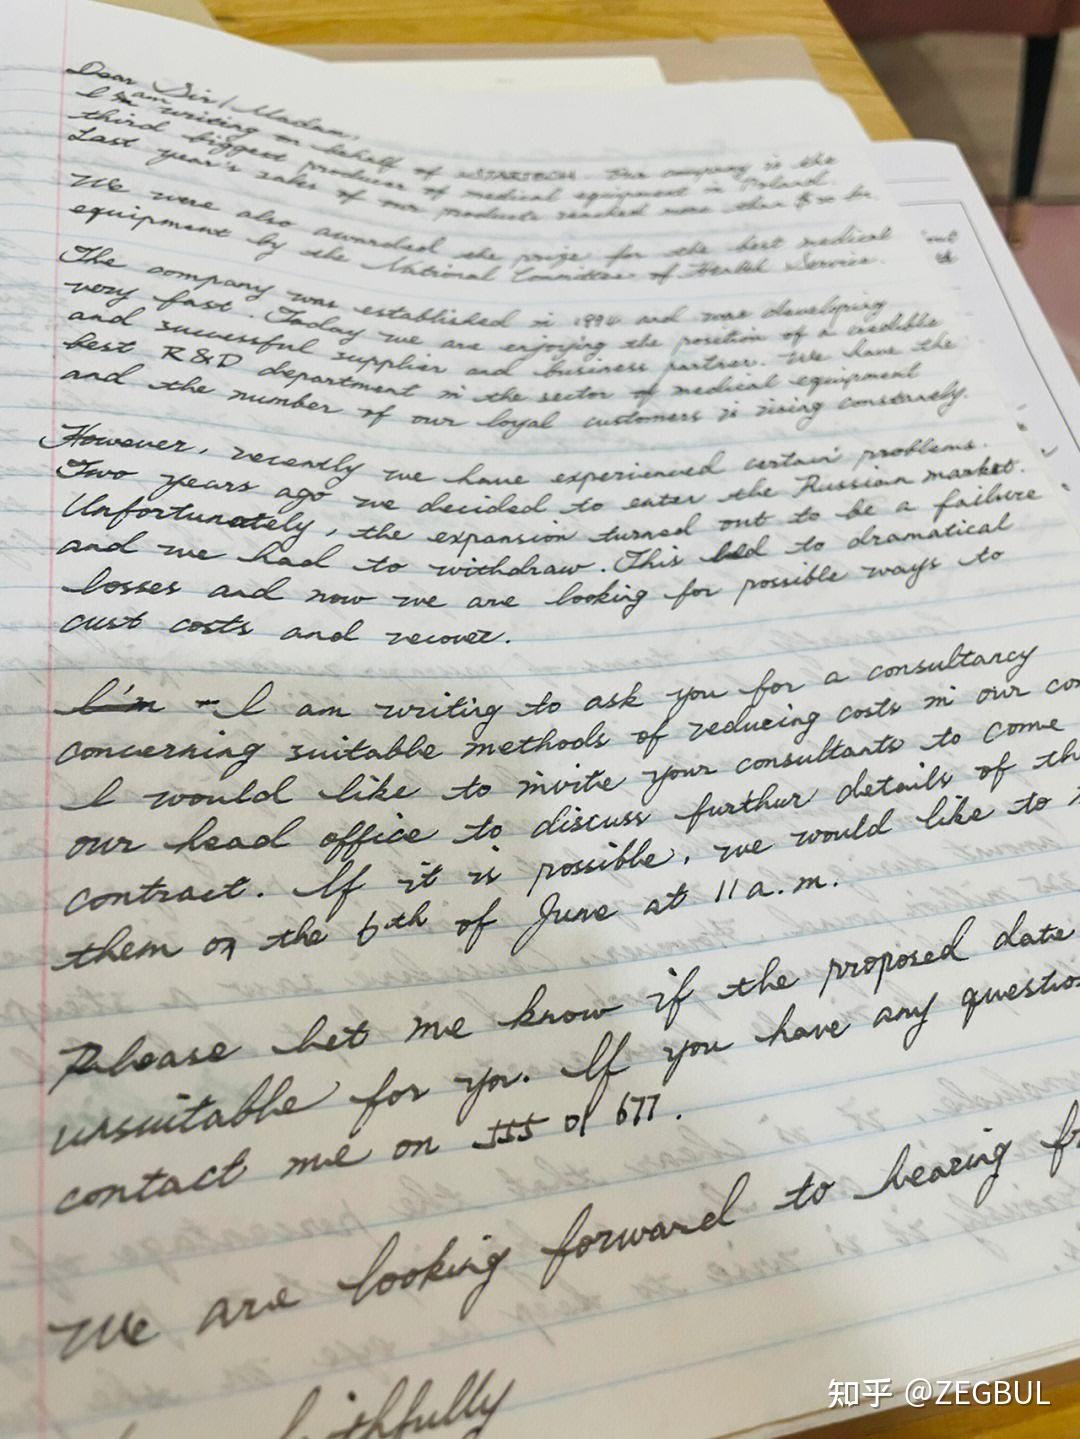 Dear Sir / Madam,
I am writing on behalf of STARTECH. Our company is the
third biggest producer of medical equipment in Poland.
Last year's sales of our products reached more than $20 bn.
We were also awarded the prize for the best medical
equipment by the National Committee of Health Service.
The company was established in 1994 and was developing
very fast. Today we are enjoying the position of a credible
and successful supplier and business partner. We have the
best R&D department in the sector of medical equipment
and the number of our loyal customers is rising constantly.
However, recently we have experienced certain problems.
Two years ago we decided to enter the Russian market.
Unfortunately, the expansion turned out to be a failure
and we had to withdraw. This led to dramatical
losses and now we are looking for possible ways to
cust costs and recover.
I'm - I am writing to ask you for a consultancy
concerning suitable methods of reducing costs in our
I would like to invite your consultants to come
our head office to discuss furthur details of
contract. If it is possible, we would like to
them on the 6th of June at 11 a.m.
Please let me know if the proposed date
unsuitable for you. If you have any
contact me on 555 01 677.
We are looking forward to hearing
知乎 @ZEGBUL